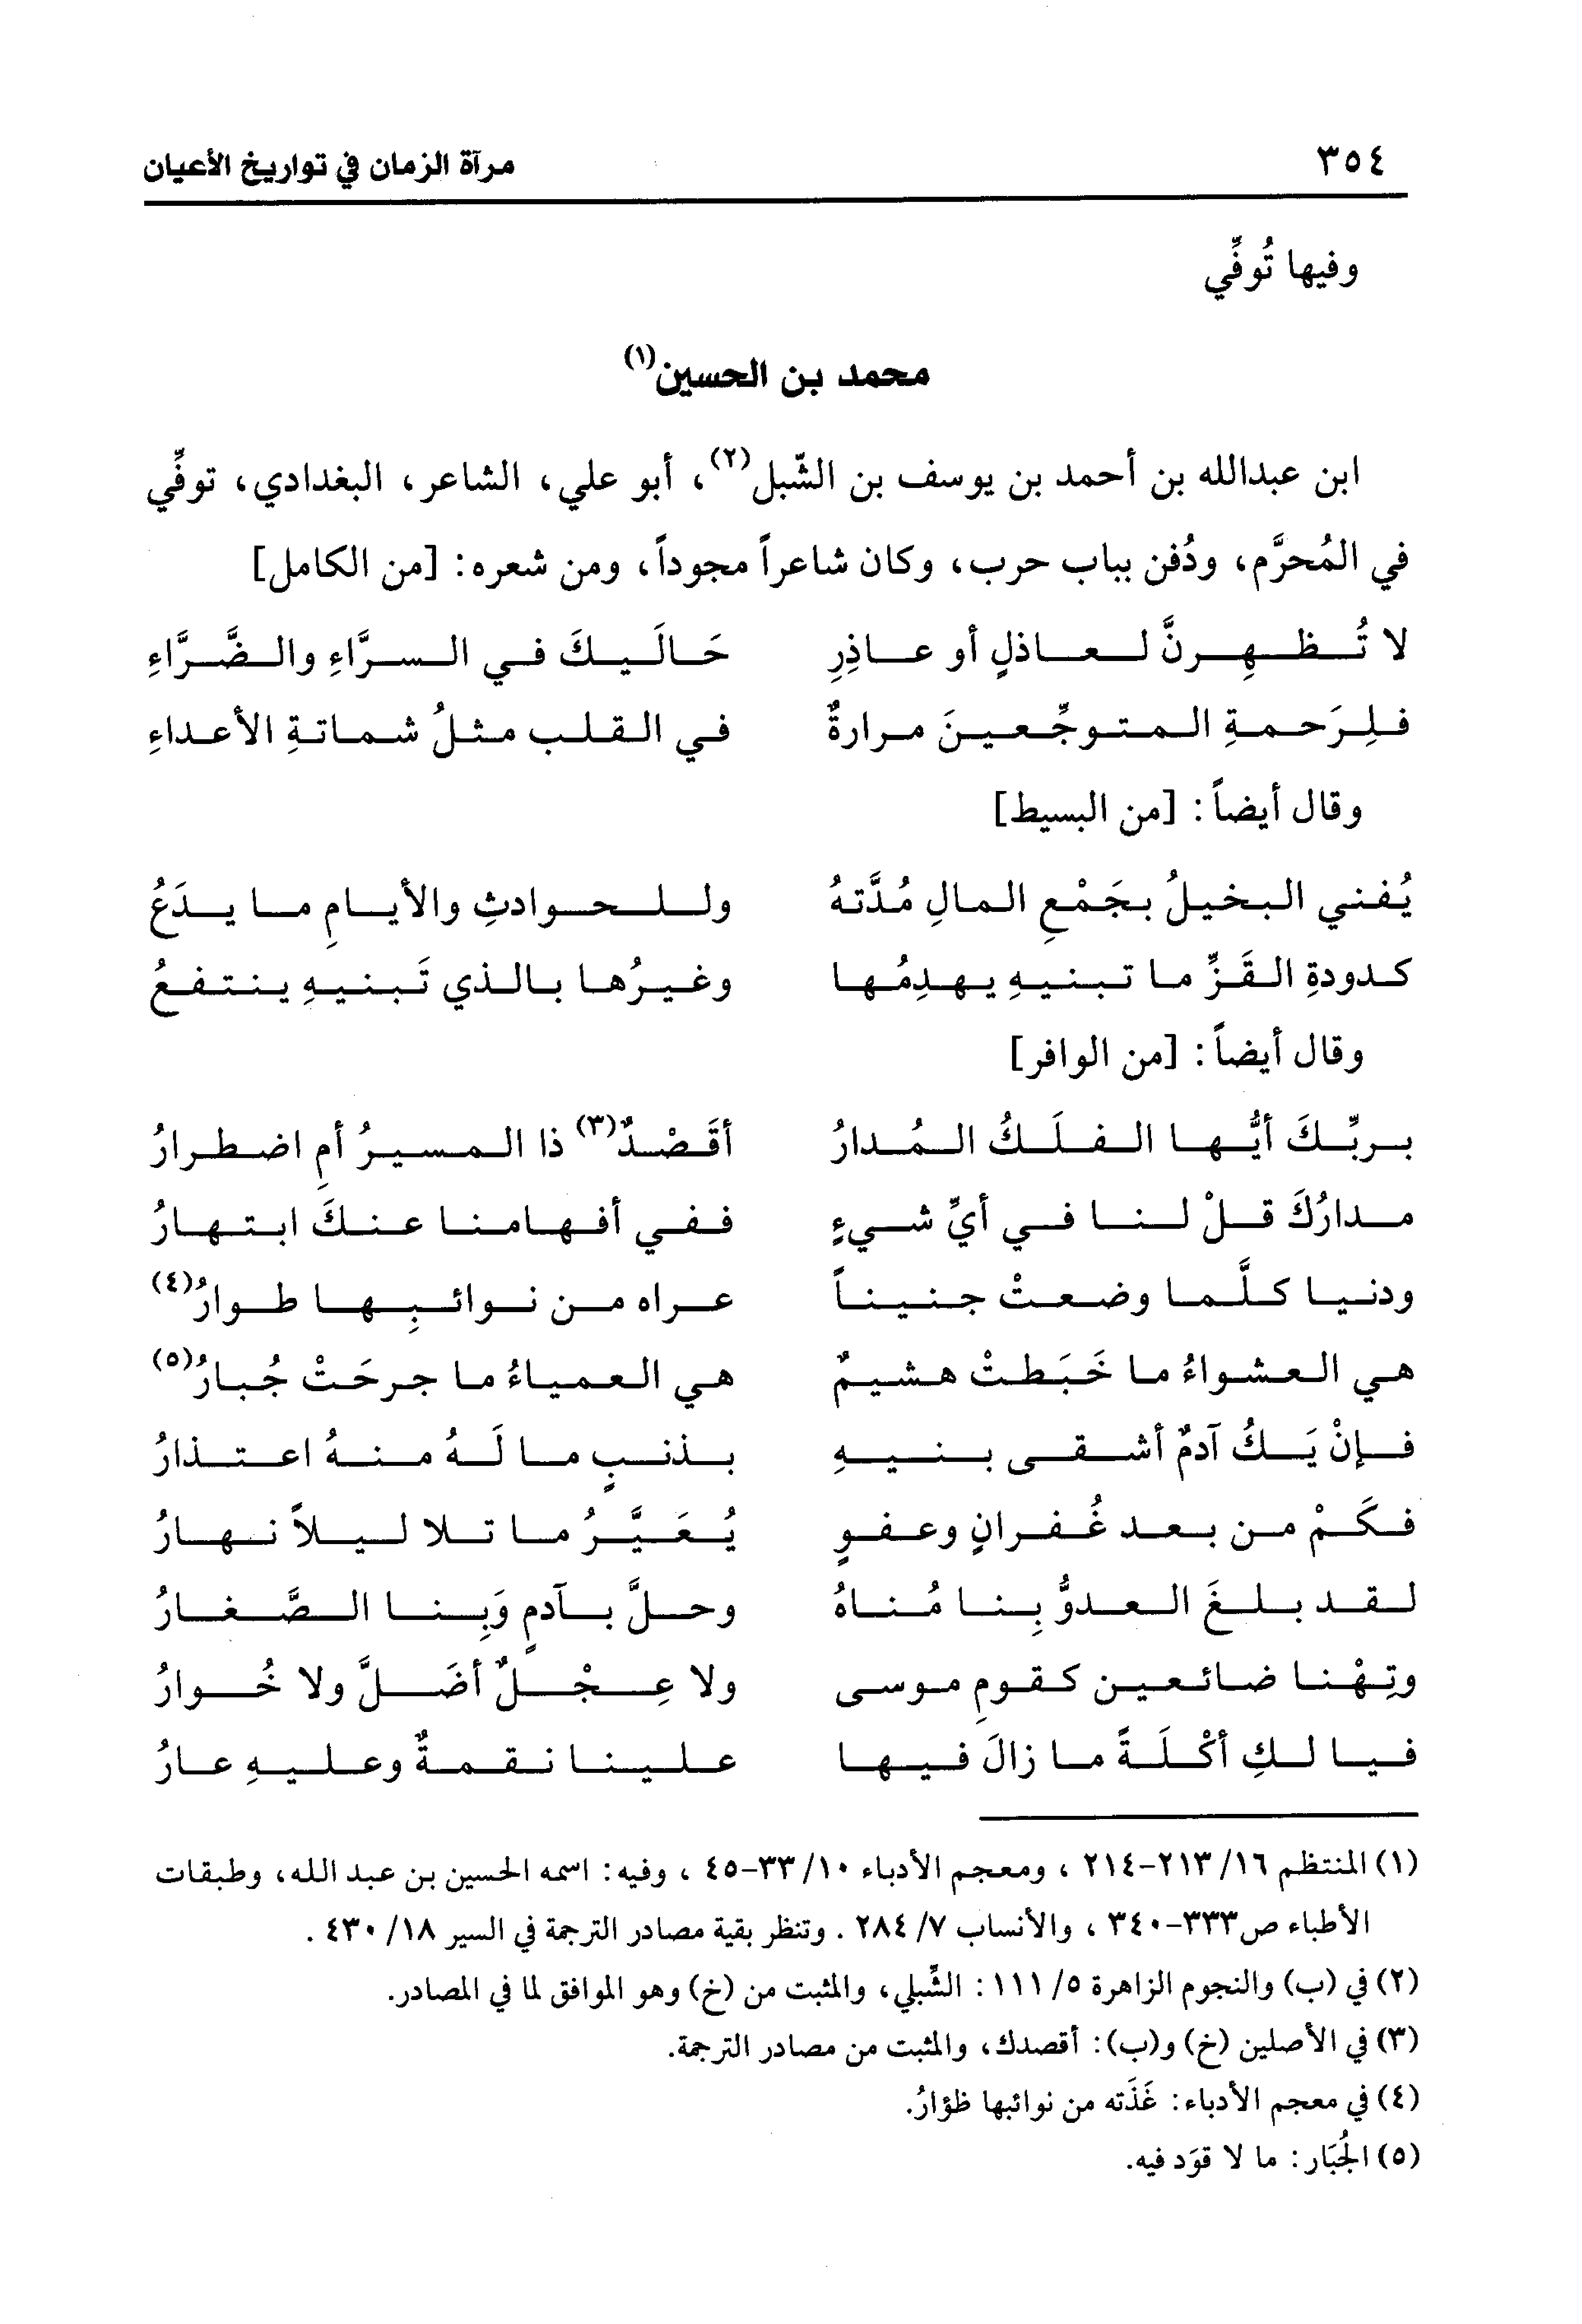 ٣٥٤ مرآة الزمان في تواريخ الأعيان
وفيها تُوفِّي
محمد بن الحسين(١)
ابن عبدالله بن أحمد بن يوسف بن الشّبل(٢)، أبو علي، الشاعر، البغدادي، توفِّي
في المُحرَّم، ودُفن بباب حرب، وكان شاعراً مجوداً، ومن شعره: [من الكامل]
لا تُظهِرنَّ لعاذلٍ أو عاذِرِ حَالَيكَ في السرَّاءِ والضَّرَّاءِ
فلِرَحمةِ المتوجِّعينَ مرارةٌ في القلب مثلُ شماتةِ الأعداءِ
وقال أيضاً: [من البسيط]
يُفني البخيلُ بجَمْعِ المالِ مُدَّتهُ وللحوادثِ والأيامِ ما يدَعُ
كدودةِ القَزِّ ما تبنيهِ يهدِمُها وغيرُها بالذي تَبنيهِ ينتفعُ
وقال أيضاً: [من الوافر]
بربِّكَ أيُّها الفلَكُ المُدارُ أقَصْدٌ(٣) ذا المسيرُ أمِ اضطرارُ
مدارُكَ قلْ لنا في أيِّ شيءٍ ففي أفهامنا عنكَ ابتهارُ
ودنيا كلَّما وضعتْ جنيناً عراه من نوائبِها طوارُ(٤)
هي العشواءُ ما خَبَطتْ هشيمٌ هي العمياءُ ما جرحَتْ جُبارُ(٥)
فإنْ يَكُ آدمٌ أشقى بنيهِ بذنبٍ ما لَهُ منهُ اعتذارُ
فكَمْ من بعد غُفرانٍ وعفوٍ يُعَيَّرُ ما تلا ليلاً نهارُ
لقد بلغَ العدوُّ بِنا مُناهُ وحلَّ بآدمٍ وَبِنا الصَّغارُ
وتِهْنا ضائعين كقومِ موسى ولا عِجْلٌ أضَلَّ ولا خُوارُ
فيا لكِ أكْلَةً ما زالَ فيها علينا نقمةٌ وعليهِ عارُ
(١) المنتظم ١٦/ ٢١٣-٢١٤ ، ومعجم الأدباء ١٠/ ٣٣-٤٥ ، وفيه: اسمه الحسين بن عبد الله، وطبقات
الأطباء ص٣٣٣-٣٤٠ ، والأنساب ٧/ ٢٨٤ . وتنظر بقية مصادر الترجمة في السير ١٨/ ٤٣٠ .
(٢) في (ب) والنجوم الزاهرة ٥/ ١١١ : الشِّبلي، والمثبت من (خ) وهو الموافق لما في المصادر.
(٣) في الأصلين (خ) و(ب): أقصدك، والمثبت من مصادر الترجمة.
(٤) في معجم الأدباء: غَذَته من نوائبها ظؤارُ.
(٥) الجُبَار: ما لا قوَد فيه.